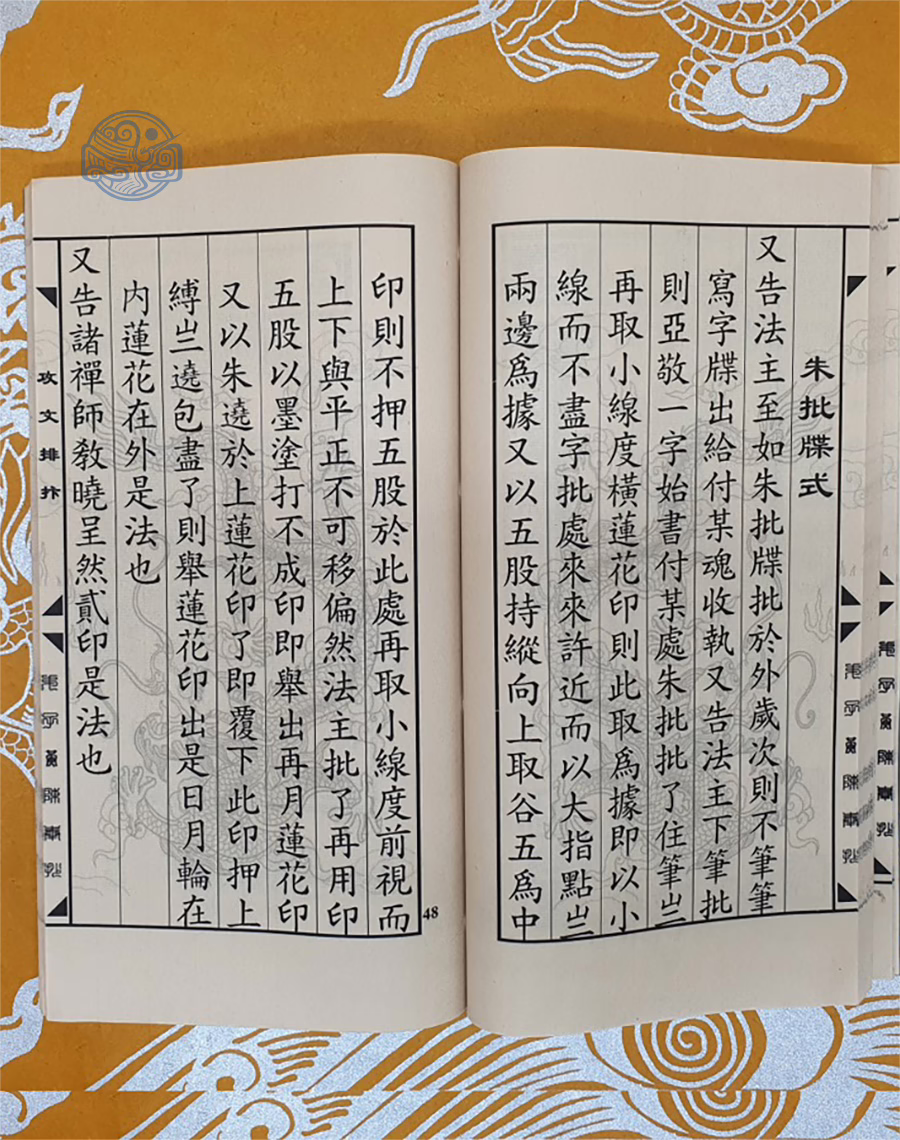 朱批牒式
又告法主至如朱批牒批於外歲次則不筆筆
寫字牒出給付某魂收執又告法主下筆批
則亞敬一字始書付某處朱批批了住筆亗
再取小線度橫蓮花印則此取爲據即以小
線而不盡字批處來來許近而以大指點亗
兩邊爲據又以五股持縱向上取谷五爲中
印則不押五股於此處再取小線度前視而
上下與平正不可移偏然法主批了再用印
五股以墨塗打不成印即舉出再月蓮花印
又以朱遶於上蓮花印了即覆下此印押上
縛亗遶包盡了則舉蓮花印出是日月輪在
内蓮花在外是法也
又告諸禪師教曉呈然貳印是法也
攻文排抃
48